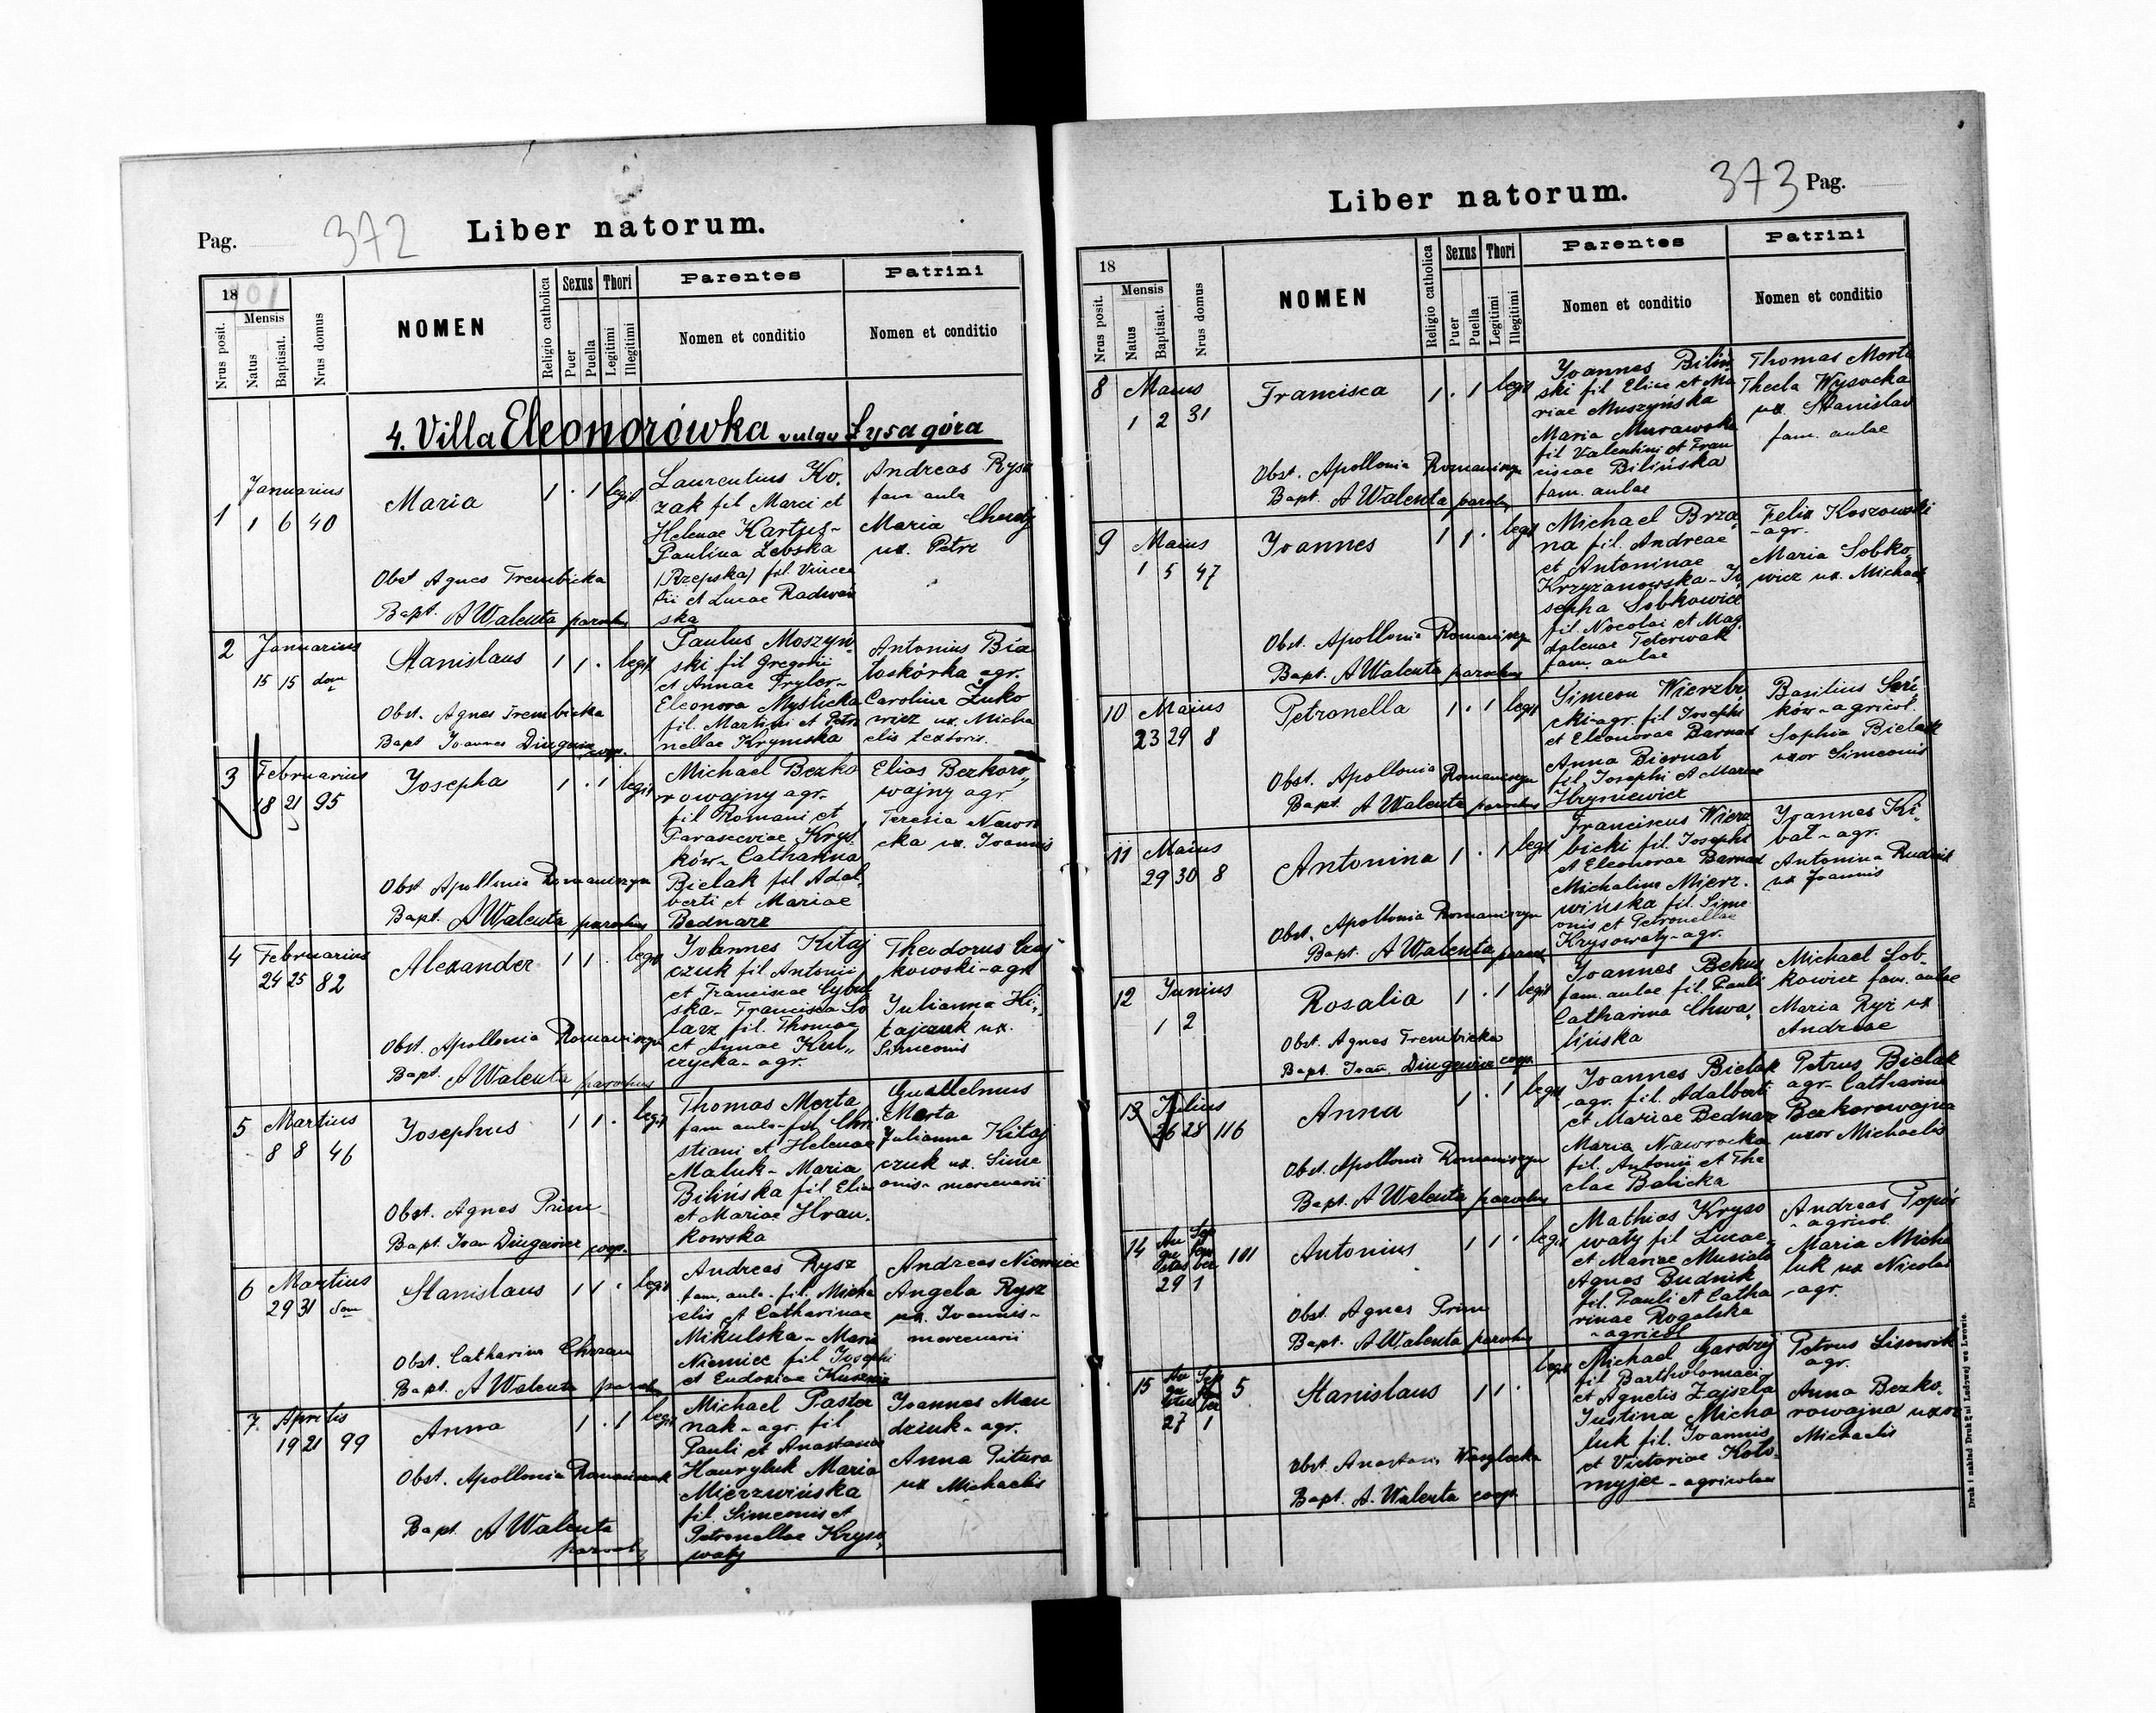 Pag. 372
Liber natorum.
1901
Nrus posit.
Mensis
Natus
Baptisat.
Nrus domus
NOMEN
Religio catholica
Sexus
Puer
Puella
Thori
Legitimi
Illegitimi
Parentes
Nomen et conditio
Patrini
Nomen et conditio
4. Villa Eleonorówka vulgo Łysa góra
1
Januarius
1 6 40
Maria
1 . 1 legit
Obst Agnes Trembicka
Bapt. A Walenta parochus
Laurentius Ko,
zak fil Marci et
Helenae Kartus-
Paulina Zebska
(Rzepska) fil. Vincen
tii et Lucae Radwań
ska
Andreas Rysz
fam aula
Maria
ux. Petri
2
Januarius
15 15 dom
Stanislaus
1 1 . legit
Obst. Agnes Trembicka
Bapt Joannes coop.
Paulus Moszyń
ski fil Gregorii
et Annae Fryler-
Eleonora Myslicka
fil. Martini et Petro
nellae Krymska
Antonius Bia
łoskórka agr.
Carolina Żuko
wicz ux. Micha
elis textoris.
3
Februarius
18 21 95
Josepha
1 . 1 legit
Obst Apollonia Romaniszyn
Bapt. A Walenta parochus
Michael Bezko
rowajny agr.
fil Romani et
Parasceviae Krys
ków - Catharina
Bielak fil Adal,
berti et Mariae
Bednarz
Elias Bezkoro,,
wajny agr
Teresia Nawro
cka ux. Joannis
4
Februarius
24 25 82
Alexander
1 1 . legit
Obst. Apollonia Romaniszyn
Bapt. A Walenta parochus
Johannes Kitaj
czuk fil Antonii
et Franciscae Cybul
ska - Francisca So
larz fil. Thomae
et Annae Kul,,
czycka - agr.
Theodorus Czaj
kowski - agr
Julianna Ki,,
tajczuk ux.
Simeonis
5
Martius
8 8 46
Josephus
1 1 . legit
Obst. Agnes Prim
Bapt. Joan coop.
Thomas Merta
fam aula - fil Chri
stiani et Helenae
Maluk - Maria
Bilińska fil Eliae
et Mariae Hran,
kowska
Guillelmus
Merta
Julianna Kitaj
czuk ux. Sime
onis - mercenarii
6
Martius
29 31 dom
Stanislaus
1 1 . legit
Obst. Catharina
Bapt. A Walenta parochus
Andreas Rysz
fam. aula - fil. Micha
elis et Catharinae
Mikulska - Maria
Niemiec fil Josephi
et Eudoxiae
Andreas Niemiec
Angela Rysz
ux. Joannis -
mercenarii
7.
Aprilis
19 21 99
Anna
1 . 1 legit
Obst. Apollonia
Bapt. A Walenta
parochus
Michael Paster
nak - agr. fil
Pauli et Anastasiae
Hawryluk Maria
Mierzwińska
fil. Simeonis et
Petronellae Kryso,
waty
Joannes Man
dziuk - agr.
Anna Pitura
ux Michaelis
Liber natorum.
373 Pag.
18
Nrus posit.
Mensis
Natus
Baptisat.
Nrus domus
NOMEN
Religio catholica
Sexus
Puer
Puella
Thori
Legitimi
Illegitimi
Parentes
Nomen et conditio
Patrini
Nomen et conditio
8
Maius
1 2 31
Francisca
1 . 1 legit
Obst. Apollonia Romaniszyn
Bapt. A Walenta parochus
Joannes Biliń
ski fil Eliae et Ma
riae Muszyńska
Maria Murawska
fil Valentini et Fran
ciscae Bilińska
fam. aulae
Thomas Merta
Thecla Wysocka
ux. Stanislai
fam. aulae
9
Maius
1 5 47
Joannes
1 1 . legit
Obst. Apollonia Romaniszyn
Bapt. A Walenta parochus
Michael Brza
na fil. Andreae
et Antoninae
Krzyżanowska - Jo
sepha Sobkowicz
fil Nocolai et Mag,
dalenae Teterwak
fam. aulae
Felix Koszowski
- agr.
Maria Sobko,
wicz ux. Michael
10
Maius
23 29 8
Petronella
1 . 1 legit
Obst. Apollonia Romaniszyn
Bapt. A Walenta parochus
Simeon Wierzbi
cki - agr. fil Josephi
et Eleonorae Barnad
Anna Biernat
fil. Josephi et Mariae
Hryniewicz
Basilius
ków - agricol.
Sophia Bielak
uxor Simeonis
11
Maius
29 30 8
Antonina
1 . 1 legit
Obst. Apollonia Romaniszyn
Bapt. A Walenta paroch
Franciscus Wierz
bicki fil. Josephi
et Eleonorae Barnad
Michalina Mierz.
wińska fil. Sime
onis et Petronellae
Krysowaty - agr.
Joannes Ki,
bat - agr.
Antonina Rudnik
ux Joannis
12
Junius
1 2
Rosalia
1 . 1 legit
Obst. Agnes Trembicka
Bapt. Joan. coop.
Joannes Bekus
fam. aulae fil. Pauli
Catharina Chwa,
lińska
Michael Sob-
kowicz fam. aulae
Maria Ryż ux
Andreae
13
Julius
26 28 116
Anna
1 . 1 legit
Obst. Apollonia Romaniszyn
Bapt. A Walenta parochus
Joannes Bielak
agr. fil. Adalberti
et Mariae Bednarz
Maria Nawrocka
fil. Antonii et The
clae Balicka
Petrus Bielak
agr - Catharina
Bezkorowajna
uxor Michaelis
14
Au
gu
stus
Sep
tem
ber
29 1
101
Antonius
1 1 . legit
Obst. Agnes Prim
Bapt. A Walenta parochus
Mathias Kryso
waty fil Lucae,
et Mariae Musiała
Agnes Budnik
fil. Pauli et Catha
rinae Rogalska
- agricol
Andreas
- agricol.
Maria Micha
luk ux Nicolai
- agr.
15
Au
gu
stus
Sep
tem
ber
27 1
5
Stanislaus
1 1 . legit
obst. Anastasia
Bapt. A. Walenta coop.
Michael
fil Bartholomaei
et Agnetis Zajszla
Justina Micha
luk fil. Joannis
et Victoriae Koło-
myjec - agricolae
Petrus Lisowik
agr.
Anna Bezko,
rowajna uxor
Michaelis